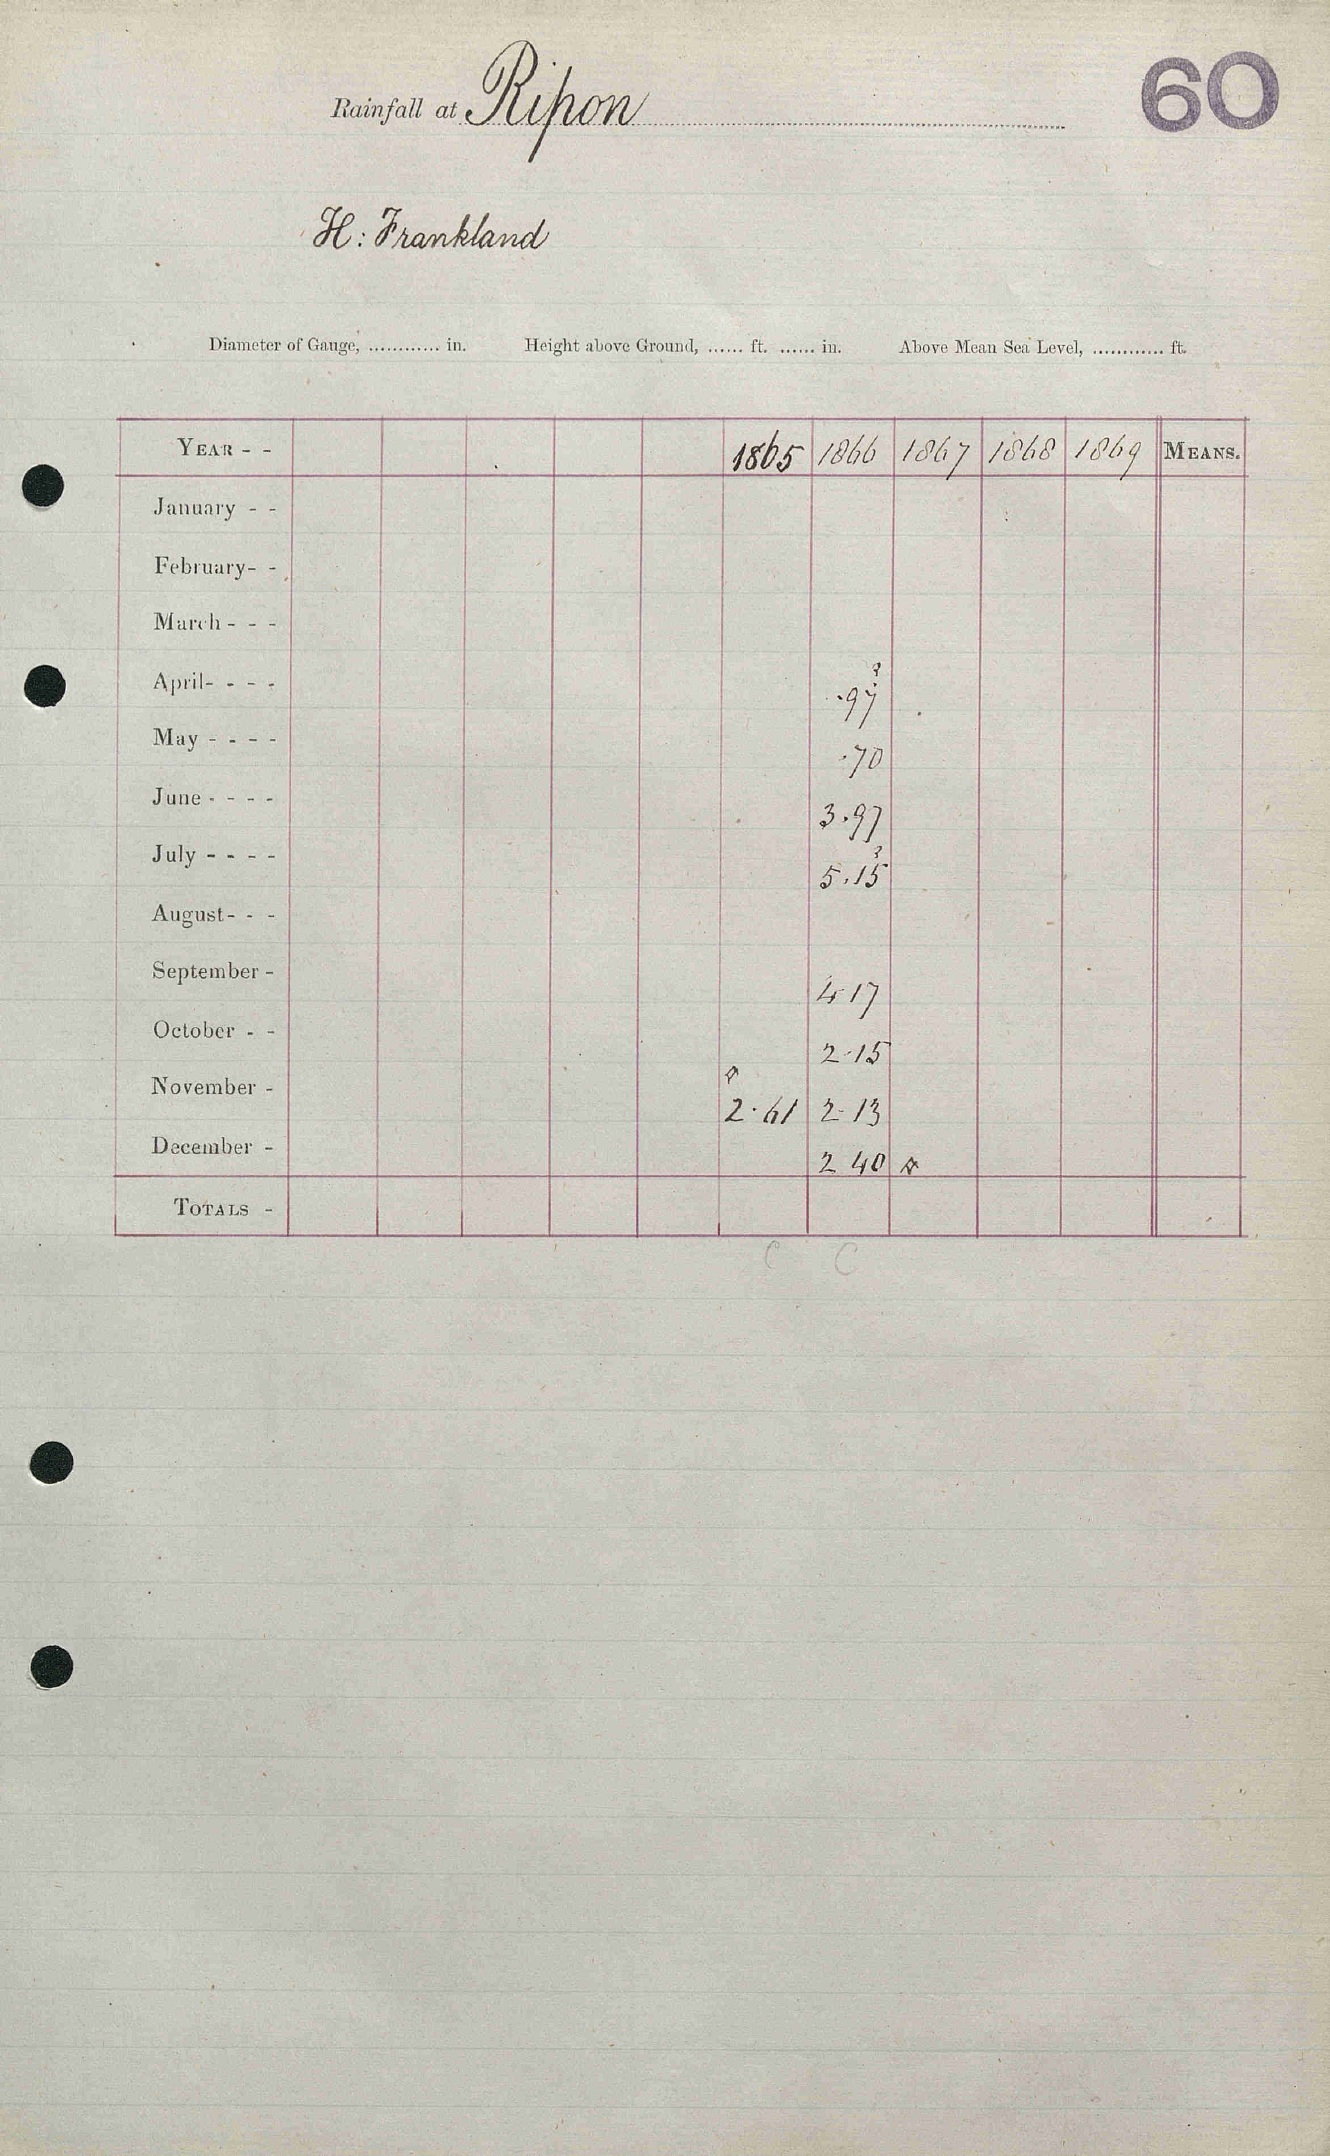 Rainfall at Ripon
60
H: Frankland
Diameter of Gauge, ............ in. Height above Ground, ...... ft. ...... in. Above Mean Sea Level, ............ ft.
YEAR - - 1865 1866 1867 1868 1869 MEANS.
January - -
February- -
March - - -
?
April- - - - .97
May - - - - .70
June - - - - 3.97
?
July - - - - 5.15
August- - -
September - 4 17
October - - 2.15
November - 2.61 2.13
December - 2 40
TOTALS -
C C